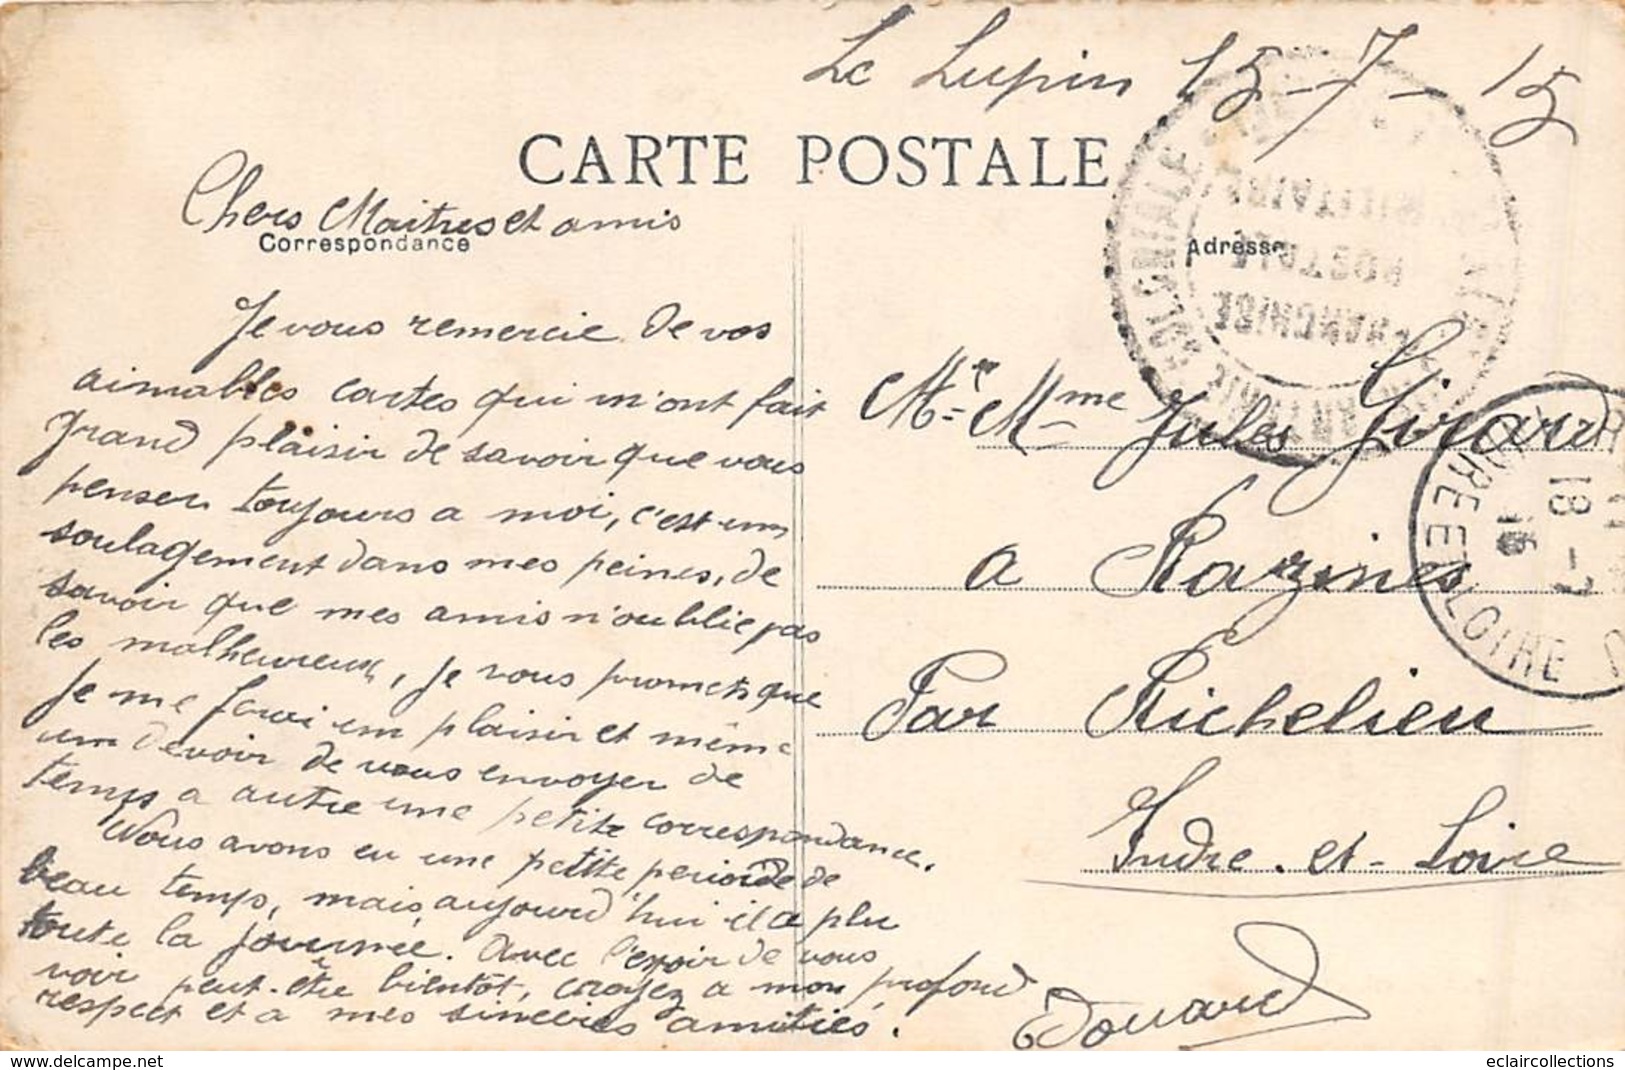 Le Lupin 15-7-15
CARTE POSTALE
Chers Maitres et amis
Correspondance
Adresse
FRANCHISE
POSTALE
MILITAIRE
Je vous remercie de vos
aimables cartes qui m'ont fait
grand plaisir de savoir que vous
penser toujours a moi, c'est un
soulagement dans mes peines, de
savoir que mes amis n'oublie pas
les malheureux, je vous promets que
je me ferai un plaisir et même
un devoir de vous envoyer de
temps a autre une petite correspondance.
Nous avons eu une petite periode de
beau temps, mais aujourd'hui il a plu
toute la journée. Avec l'espoir de vous
voir peut-être bientôt, croyez a mon profond
respect et a mes sincères amitiés.
Mr = Mme Jules Girard
a Razines
Par Richelieu
Indre-et-Loire
18-7
15
INDRE ET LOIRE
Edouard
www.delcampe.net
eclaircollections